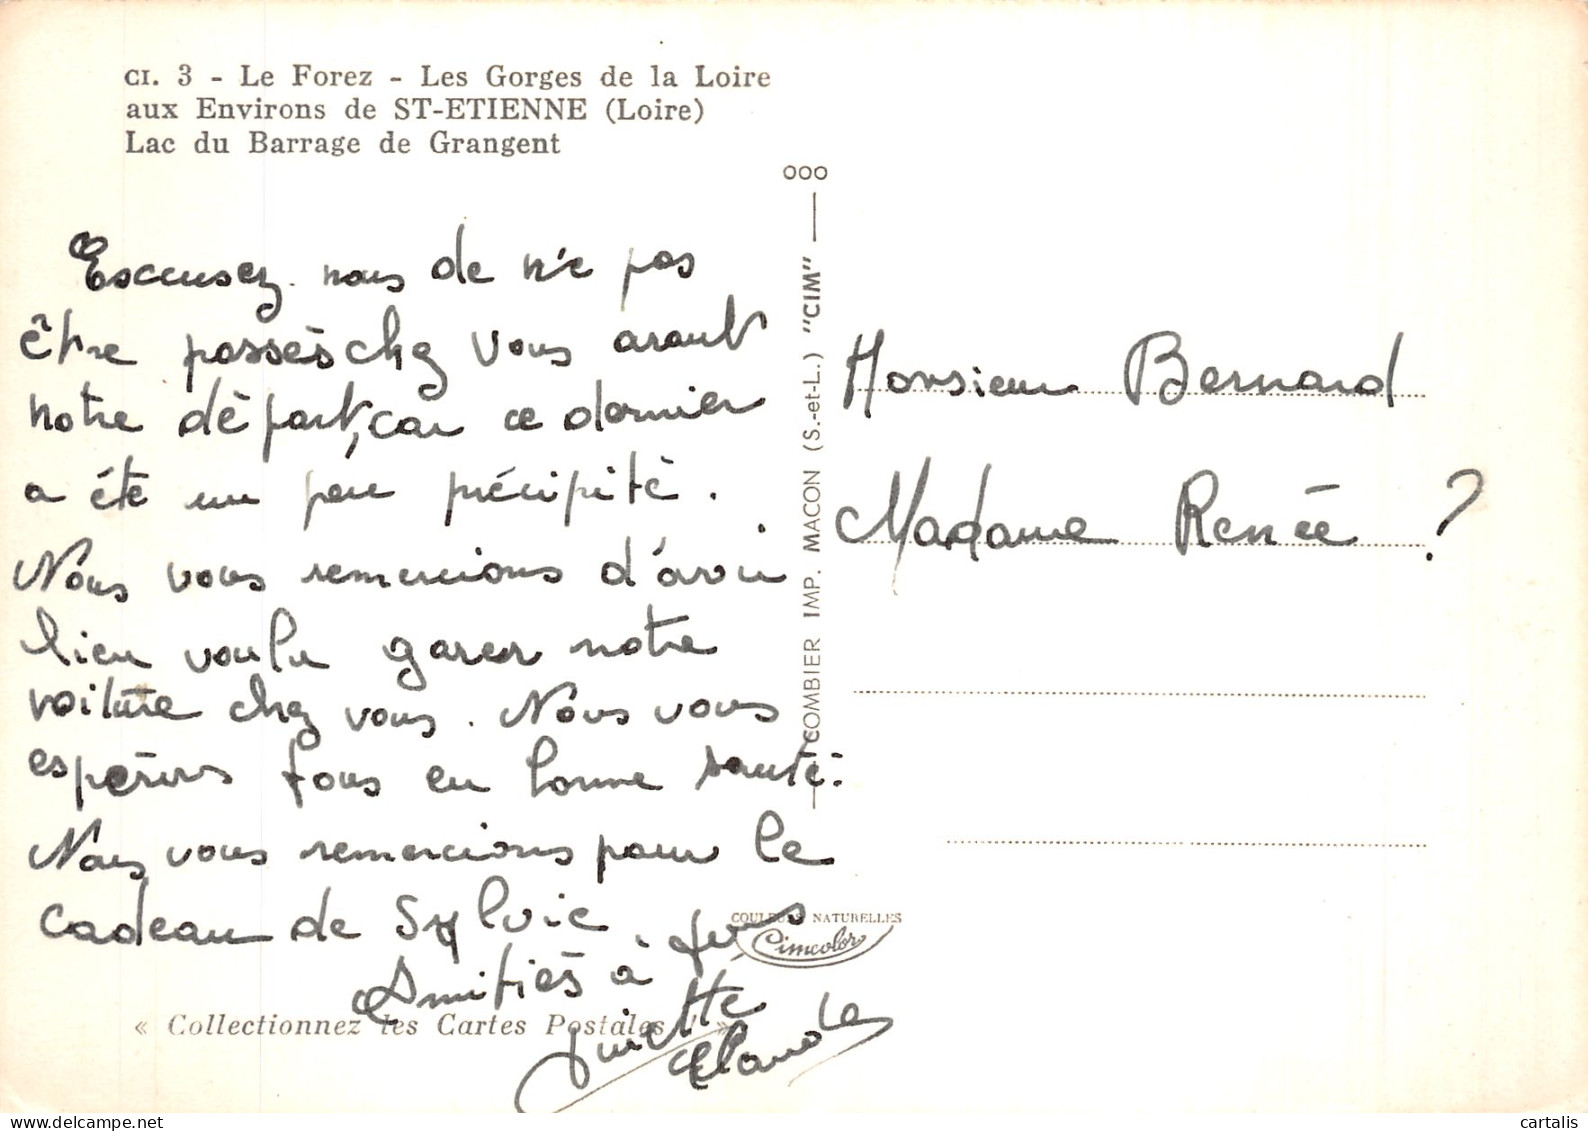 CI. 3 - Le Forez - Les Gorges de la Loire
aux Environs de ST-ETIENNE (Loire)
Lac du Barrage de Grangent
Excusez nous de n'e pas
être passés chez vous avant
notre départ, car ce dernier
a été un peu précipité.
Nous vous remercions d'avoir
bien voulu garer notre
voiture chez vous. Nous vous
espérons tous en bonne santé.
Nous vous remercions pour le
cadeau de Sylvie
Amitiés à tous
Juliette
Claude
Monsieur Bernard
Madame Renée ?
COMBIER IMP. MACON (S.-et-L.) "CIM"
OOO
COULEURS NATURELLES
Cimcolor
« Collectionnez les Cartes Postales ! »
cartalis